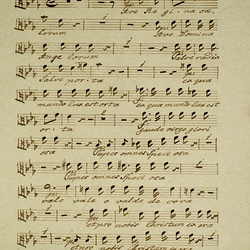 Ave Regina coe
lorum Ave Domina
Angelorum Salve radix
Salve porta ex qua
mundo lux est orta ex qua mundo lux est
orta Gaude virgo glori
osa Super omnes speciosa
Super omnes speciosa
vale vale o valde decora
et pro nobis Christum exora
et pro nobis Christum exora